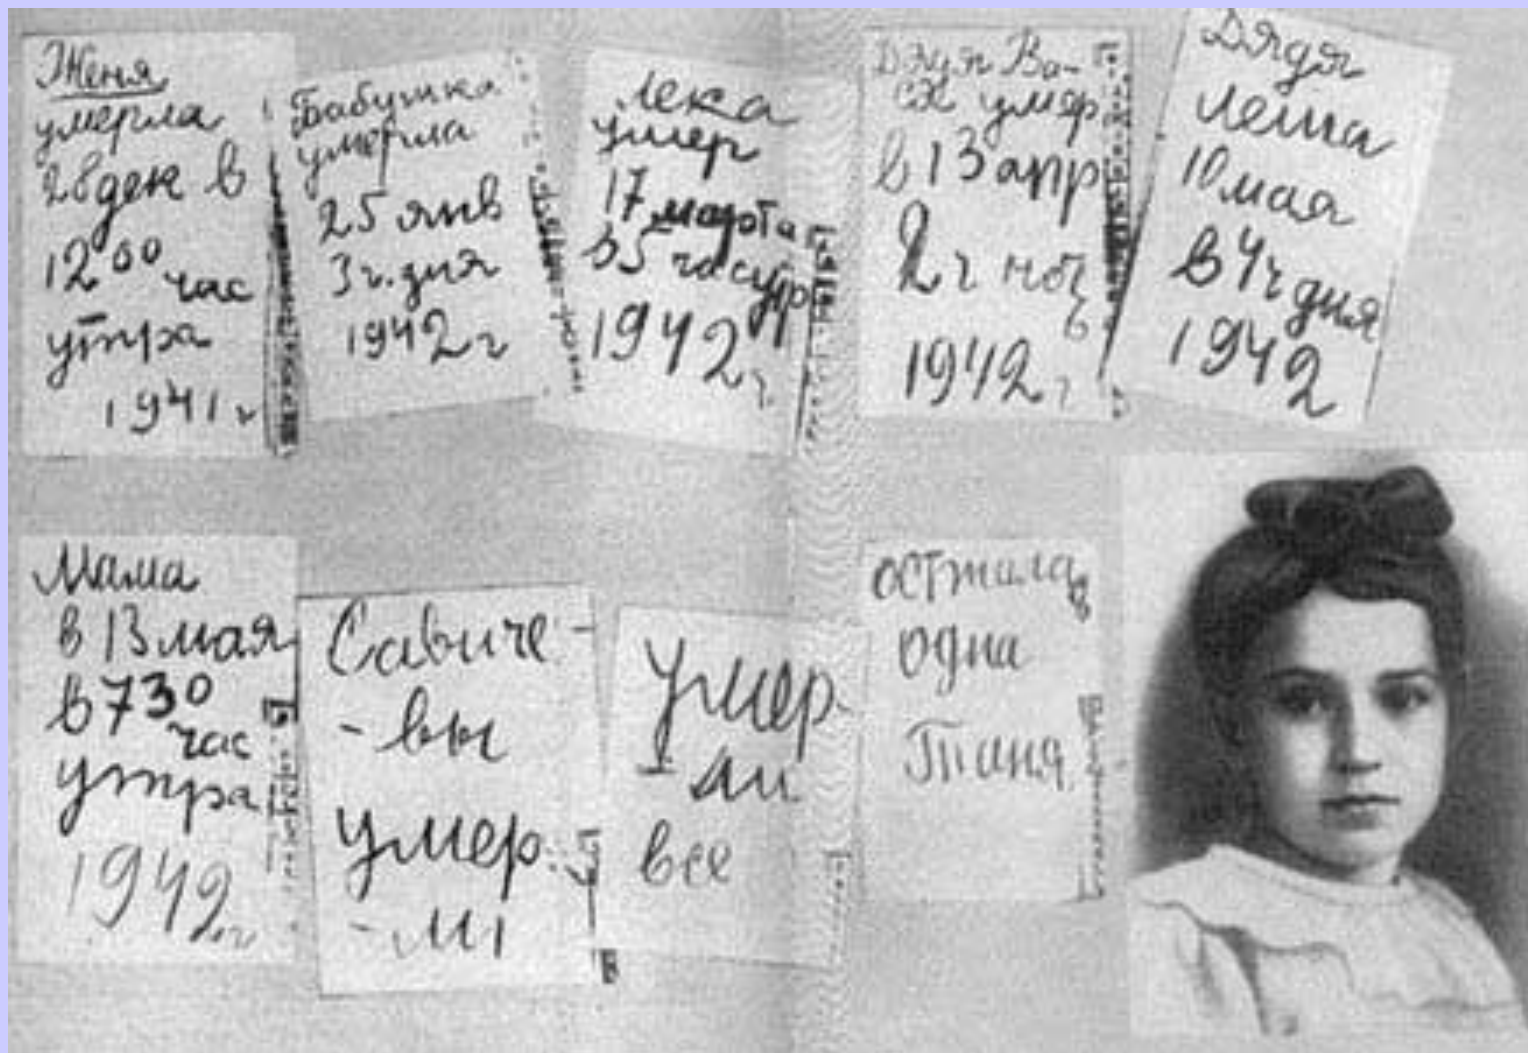 Женя
умерла
28 дек в
12 00 час
утра
1941 г
Бабушка
умерла
25 янв
3 ч. дня
1942 г
Лека
умер
17 марта
в 5 час утр
1942 г.
Дядя Ва-
ся умер
в 13 апр
2 ч ночь
1942 г
Дядя
Леша
10 мая
в 4 ч дня
1942
Мама
в 13 мая
в 7 30
час
утра
1942 г
Савиче-
-вы
умер
-ли
Умер-
ли
все
Осталась
одна
Таня